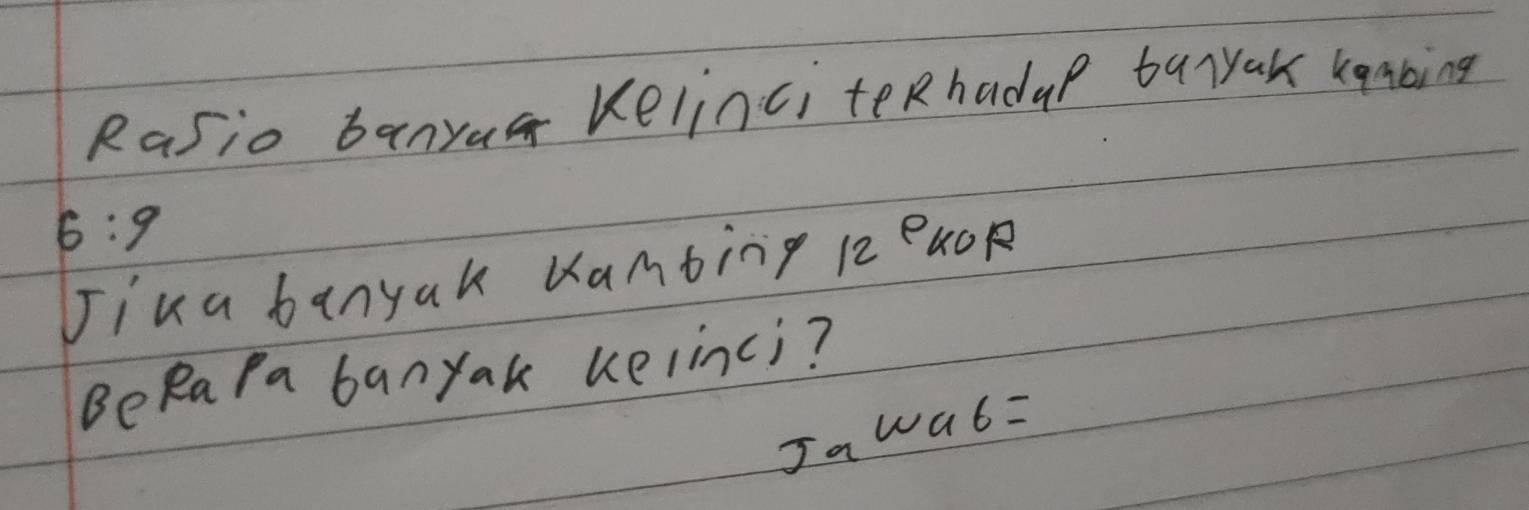 Rasio banyak Kelinci terhadap banyak kambing
6:9
Jika banyak kambing 12 ekor
Berapa banyak kelinci?
Jawab=